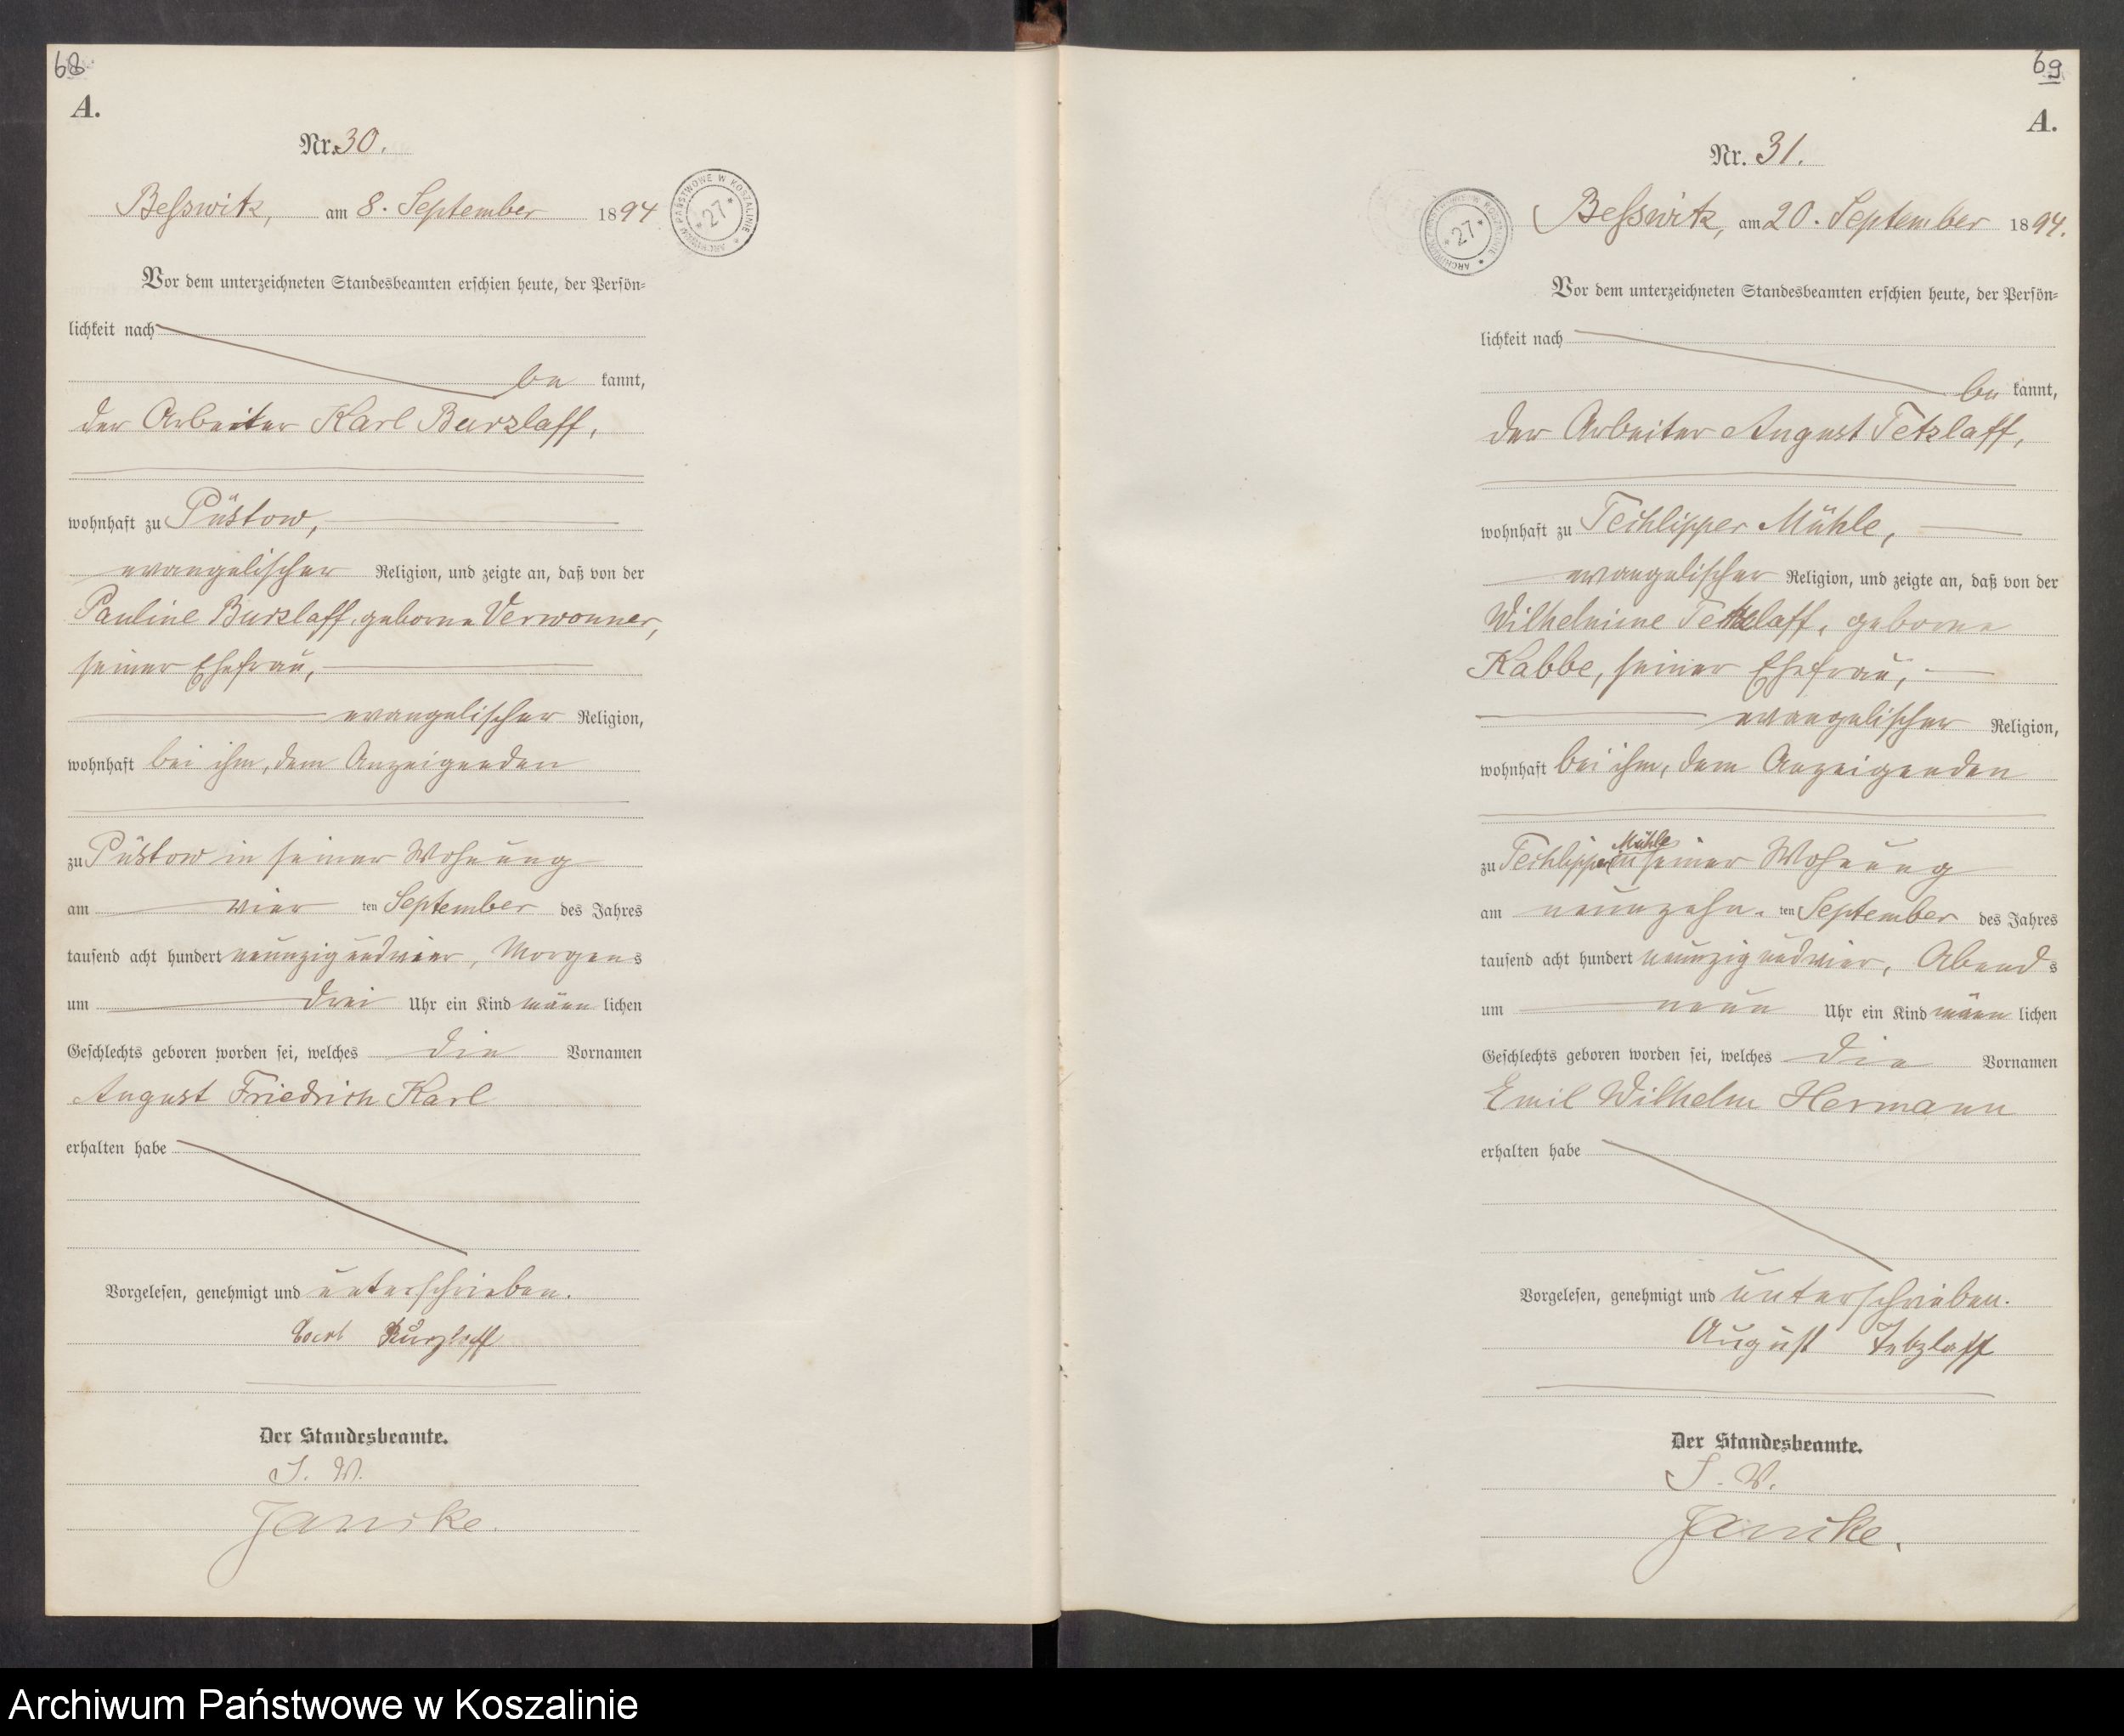 68
A.
Nr. 30.
Besswitz, am 8. September 1894
ARCHIWUM PAŃSTWOWE W KOSZALINIE * 27 *
Vor dem unterzeichneten Standesbeamten erschien heute, der Persön-
lichkeit nach
be kannt,
der Arbeiter Karl Burzlaff,
wohnhaft zu Püstow,
evangelischer Religion, und zeigte an, daß von der
Pauline Burzlaff, geborne Verwonner,
seiner Ehefrau,
evangelischer Religion,
wohnhaft bei ihm, dem Anzeigenden
zu Püstow in seiner Wohnung
am vier ten September des Jahres
tausend acht hundert neunzig und vier, Morgens
um drei Uhr ein Kind männ lichen
Geschlechts geboren worden sei, welches die Vornamen
August Friedrich Karl
erhalten habe
Vorgelesen, genehmigt und unterschrieben.
Carl Burzlaff
Der Standesbeamte.
I. V.
Janike.
69
A.
Nr. 31.
Besswitz, am 20. September 1894.
ARCHIWUM PAŃSTWOWE W KOSZALINIE * 27 *
Vor dem unterzeichneten Standesbeamten erschien heute, der Persön-
lichkeit nach
be kannt,
der Arbeiter August Tetzlaff,
wohnhaft zu Techlipper Mühle,
evangelischer Religion, und zeigte an, daß von der
Wilhelmine Tetzlaff, geborne
Kabbe, seiner Ehefrau,
evangelischer Religion,
wohnhaft bei ihm, dem Anzeigenden
Mühle
zu Techlipper in seiner Wohnung
am neunzehn ten September des Jahres
tausend acht hundert neunzig und vier, Abends
um neun Uhr ein Kind männ lichen
Geschlechts geboren worden sei, welches die Vornamen
Emil Wilhelm Hermann
erhalten habe
Vorgelesen, genehmigt und unterschrieben.
August Tetzlaff
Der Standesbeamte.
I. V.
Janike.
Archiwum Państwowe w Koszalinie